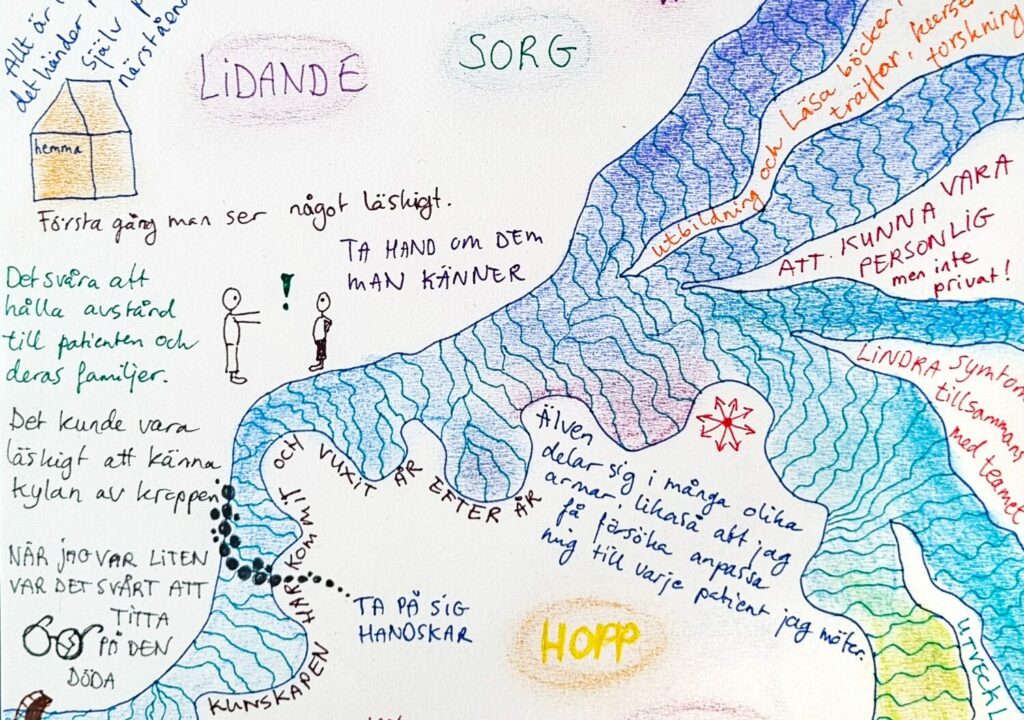 Allt är
det händer
själv
närstående
hemma
LIDANDE
SORG
Läsa böcker
träffar, kurser
forskning
utbildning och
Första gång man ser något läskigt.
TA HAND OM DEM
MAN KÄNNER
ATT KUNNA VARA
PERSONLIG
men inte
privat!
Det svåra att
hålla avstånd
till patienten och
deras familjer.
!
LINDRA symtom
tillsammans
med teamet
Det kunde vara
läskigt att känna
kylan av kroppen
KUNSKAPEN HAR KOMMIT OCH VUXIT ÅR EFTER ÅR
Älven
delar sig i många olika
armar, likaså att jag
få försöka anpassa
mig till varje patient jag möter.
NÄR JAG VAR LITEN
VAR DET SVÅRT ATT
TITTA
PÅ DEN
DÖDA
TA PÅ SIG
HANDSKAR
HOPP